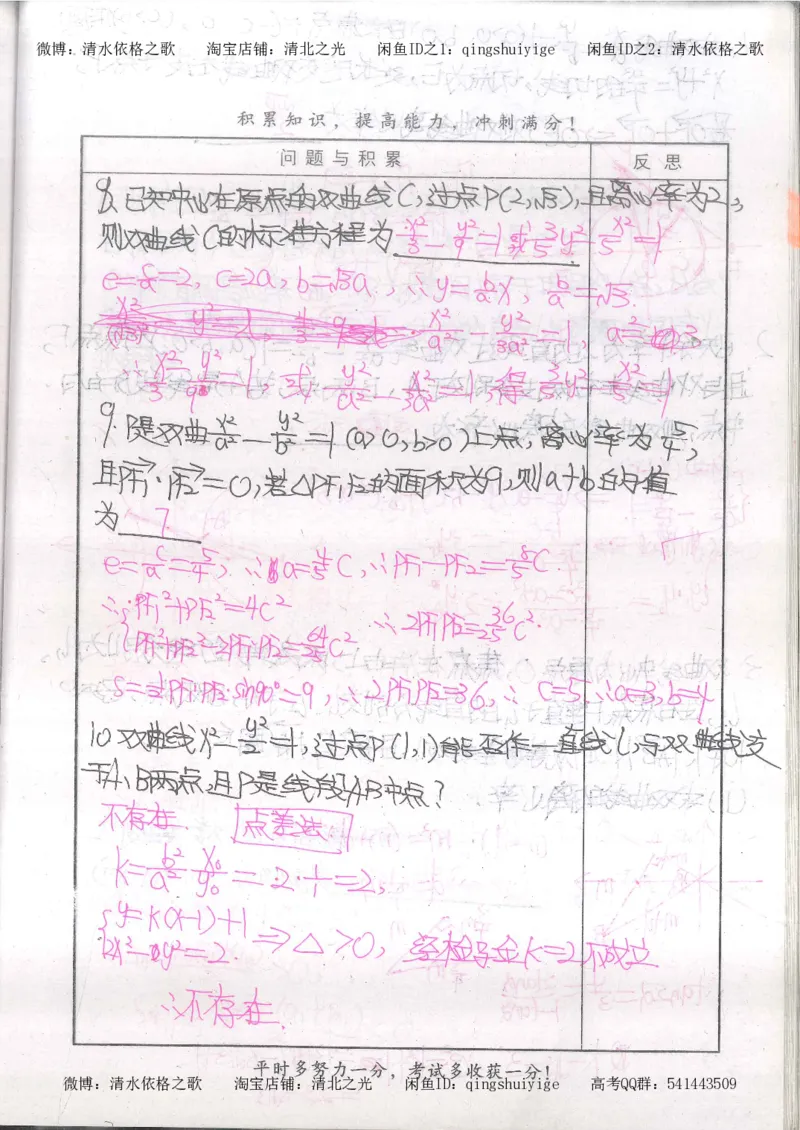 微博：清水依格之歌 淘宝店铺：清北之光 闲鱼ID之1：qingshuiyige 闲鱼ID之2：清水依格之歌
积累知识，提高能力，冲刺满分！
问题与积累 反思
8、已知中心在原点的双曲线C，过点P(2,√3)，且离心率为2，
则双曲线C的标准方程为 x²/3 - y²/9 = 1或 3/5y² - x²/5 = 1
e=c/a=2，c=2a，b=√3a，∴y=b/a x，b/a=√3.
x²/a² - y²/3a² = 1，a²=3
∴x²/3 - y²/9 = 1，或 y²/a² - x²/3a² = 1得 3/5y² - x²/5 = 1
9. P是双曲 x²/a² - y²/b² = 1 (a>0,b>0)上点，离心率为5/4，
且PF₁·PF₂=0，若△PF₁F₂的面积为9，则a+b的值
为 7
e=c/a=5/4，∴a=4/5C，∴PF₁-PF₂=8/5C.
∴PF₁²+PF₂²=4C² ∴2PF₁PF₂=36/25C².
PF₁²+PF₂²-2PF₁PF₂=64/25C²
S=½PF₁·PF₂·sin90°=9，∴2PF₁PF₂=36，∴C=5∴a=3，b=4
10.双曲线x²-y²/2=1，过点P(1,1)能否作一直线l，与双曲线交
于A、B两点，且P是线段AB中点？
不存在. 点差法
k=b²/a² x₀/y₀=2·1=2，
y=k(x-1)+1
2x²-y²=2. ⇒△>0，经检验k=2不成立
∴不存在.
平时多努力一分，考试多收获一分！
微博：清水依格之歌 淘宝店铺：清北之光 闲鱼ID：qingshuiyige 高考QQ群：541443509